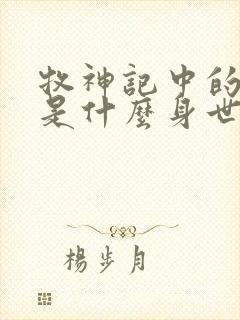 牧神記中的
是什麼身世
楊步月